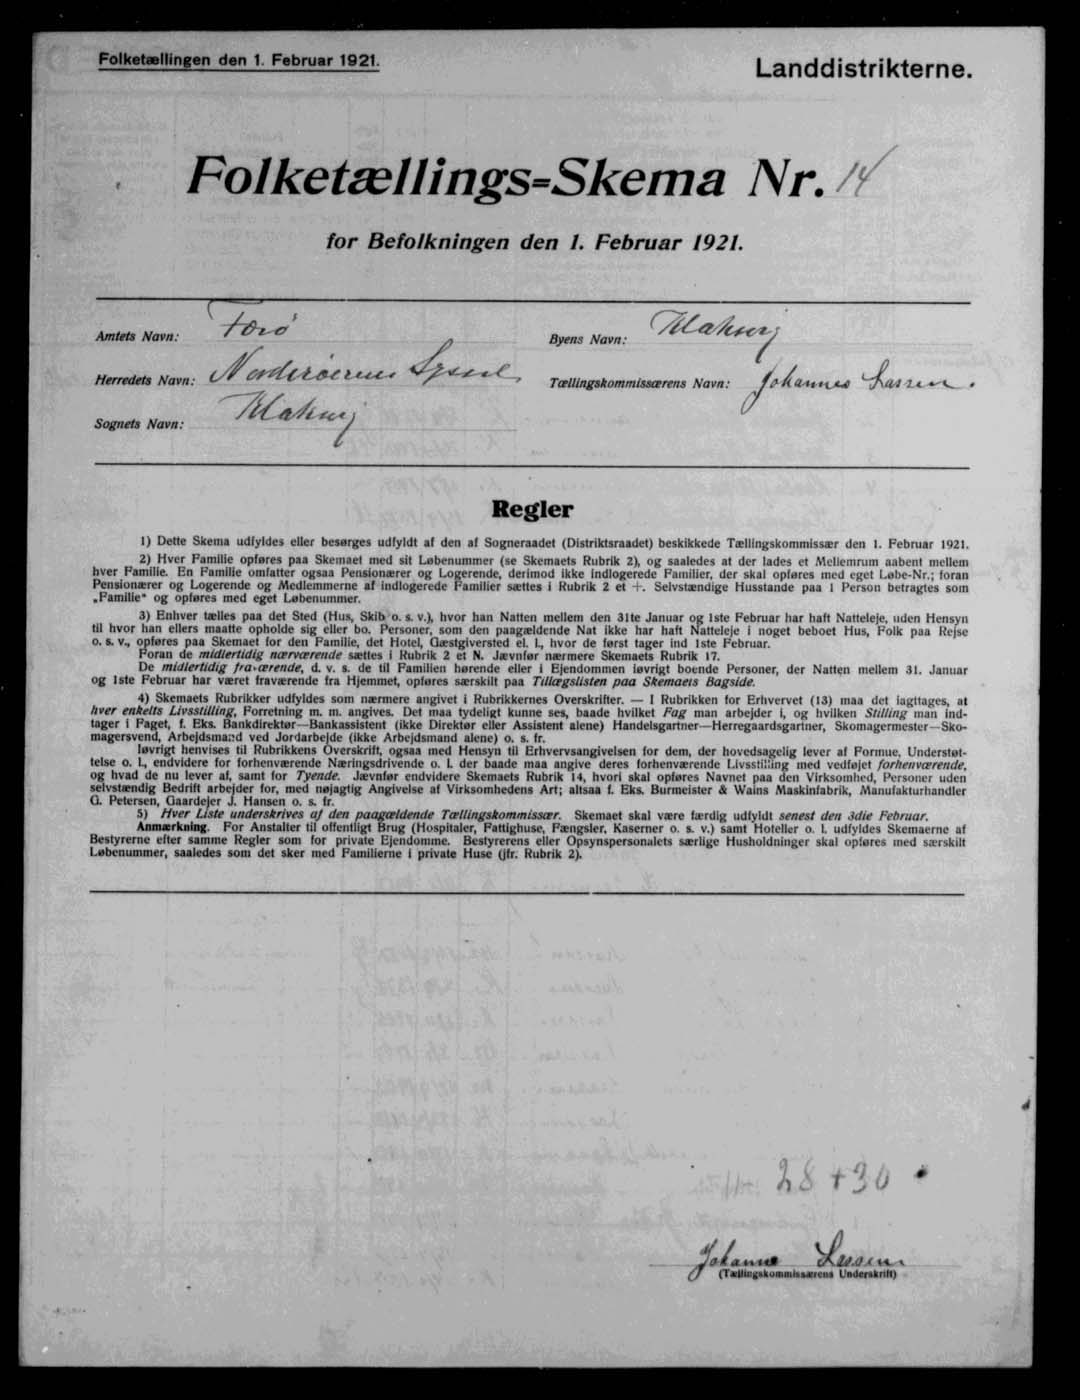 Folketællingen den 1. Februar 1921.
Landdistrikterne.
Folketællings=Skema Nr. 14
for Befolkningen den 1. Februar 1921.
Amtets Navn: Færø
Byens Navn: Klaksvig
Herredets Navn: Norderøernes Syssel
Tællingskommissærens Navn: Johannes Lassen.
Sognets Navn: Klaksvig
Regler
1) Dette Skema udfyldes eller besørges udfyldt af den af Sogneraadet (Distriktsraadet) beskikkede Tællingskommissær den 1. Februar 1921.
2) Hver Familie opføres paa Skemaet med sit Løbenummer (se Skemaets Rubrik 2), og saaledes at der lades et Mellemrum aabent mellem
hver Familie. En Familie omfatter ogsaa Pensionærer og Logerende, derimod ikke indlogerede Familier, der skal opføres med eget Løbe-Nr.; foran
Pensionærer og Logerende og Medlemmerne af indlogerede Familier sættes i Rubrik 2 et +. Selvstændige Husstande paa 1 Person betragtes som
„Familie“ og opføres med eget Løbenummer.
3) Enhver tælles paa det Sted (Hus, Skib o. s. v.), hvor han Natten mellem den 31te Januar og 1ste Februar har haft Natteleje, uden Hensyn
til hvor han ellers maatte opholde sig eller bo. Personer, som den paagældende Nat ikke har haft Natteleje i noget beboet Hus, Folk paa Rejse
o. s. v., opføres paa Skemaet for den Familie, det Hotel, Gæstgiversted el. l., hvor de først tager ind 1ste Februar.
Foran de midlertidig nærværende sættes i Rubrik 2 et N. Jævnfør nærmere Skemaets Rubrik 17.
De midlertidig fraværende, d. v. s. de til Familien hørende eller i Ejendommen iøvrigt boende Personer, der Natten mellem 31. Januar
og 1ste Februar har været fraværende fra Hjemmet, opføres særskilt paa Tillægslisten paa Skemaets Bagside.
4) Skemaets Rubrikker udfyldes som nærmere angivet i Rubrikkernes Overskrifter. — I Rubrikken for Erhvervet (13) maa det iagttages, at
hver enkelts Livsstilling, Forretning m. m. angives. Det maa tydeligt kunne ses, baade hvilket Fag man arbejder i, og hvilken Stilling man ind-
tager i Faget, f. Eks. Bankdirektør—Bankassistent (ikke Direktør eller Assistent alene) Handelsgartner—Herregaardsgartner, Skomagermester—Sko-
magersvend, Arbejdsmand ved Jordarbejde (ikke Arbejdsmand alene) o. s. fr.
Iøvrigt henvises til Rubrikkens Overskrift, ogsaa med Hensyn til Erhvervsangivelsen for dem, der hovedsagelig lever af Formue, Understøt-
telse o. l., endvidere for forhenværende Næringsdrivende o. l. der baade maa angive deres forhenværende Livsstilling med vedføjet forhenværende,
og hvad de nu lever af, samt for Tyende. Jævnfør endvidere Skemaets Rubrik 14, hvori skal opføres Navnet paa den Virksomhed, Personer uden
selvstændig Bedrift arbejder for, med nøjagtig Angivelse af Virksomhedens Art; altsaa f. Eks. Burmeister & Wains Maskinfabrik, Manufakturhandler
G. Petersen, Gaardejer J. Hansen o. s. fr.
5) Hver Liste underskrives af den paagældende Tællingskommissær. Skemaet skal være færdig udfyldt senest den 3die Februar.
Anmærkning. For Anstalter til offentligt Brug (Hospitaler, Fattighuse, Fængsler, Kaserner o. s. v.) samt Hoteller o. l. udfyldes Skemaerne af
Bestyrerne efter samme Regler som for private Ejendomme. Bestyrerens eller Opsynspersonalets særlige Husholdninger skal opføres med særskilt
Løbenummer, saaledes som det sker med Familierne i private Huse (jfr. Rubrik 2).
28 + 30
Johannes Lassen
(Tællingskommissærens Underskrift)